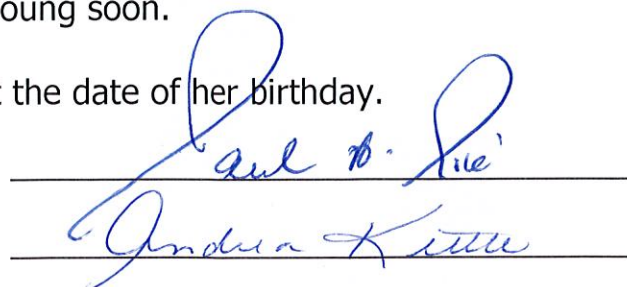 oung soon.
t the date of her birthday.
Paul
Andrea Kittle